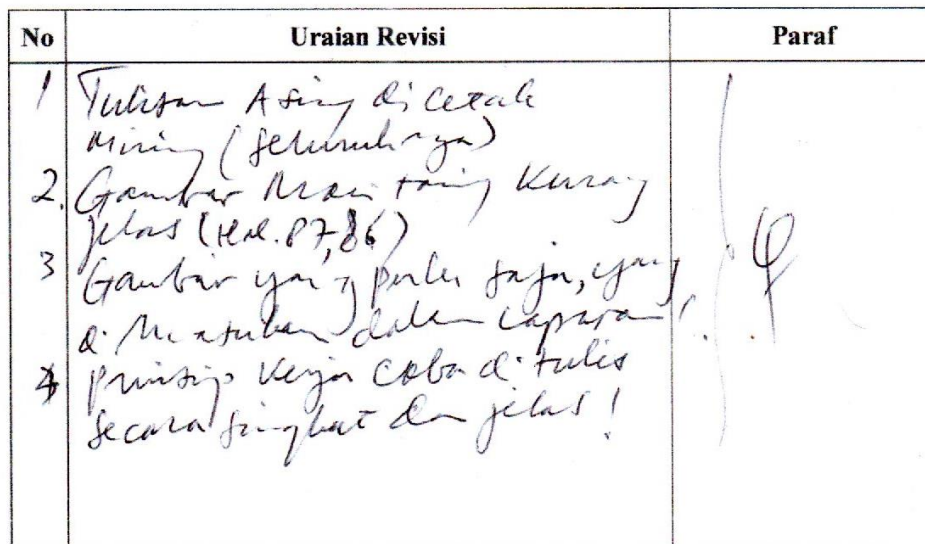 No Uraian Revisi Paraf
1 Tulisan Asing dicetak
Miring (seluruhnya)
2. Gambar Kurang
jelas (Hal. 87,86)
3 Gambar yang perlu saja, yang
dimasukan dalam Laporan!
4 prinsip kerja coba ditulis
secara singkat dan jelas!